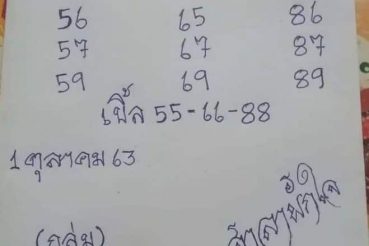 56 65 86
57 67 87
59 69 89
เบิ้ล 55-66-88
1 ตุลาคม 63